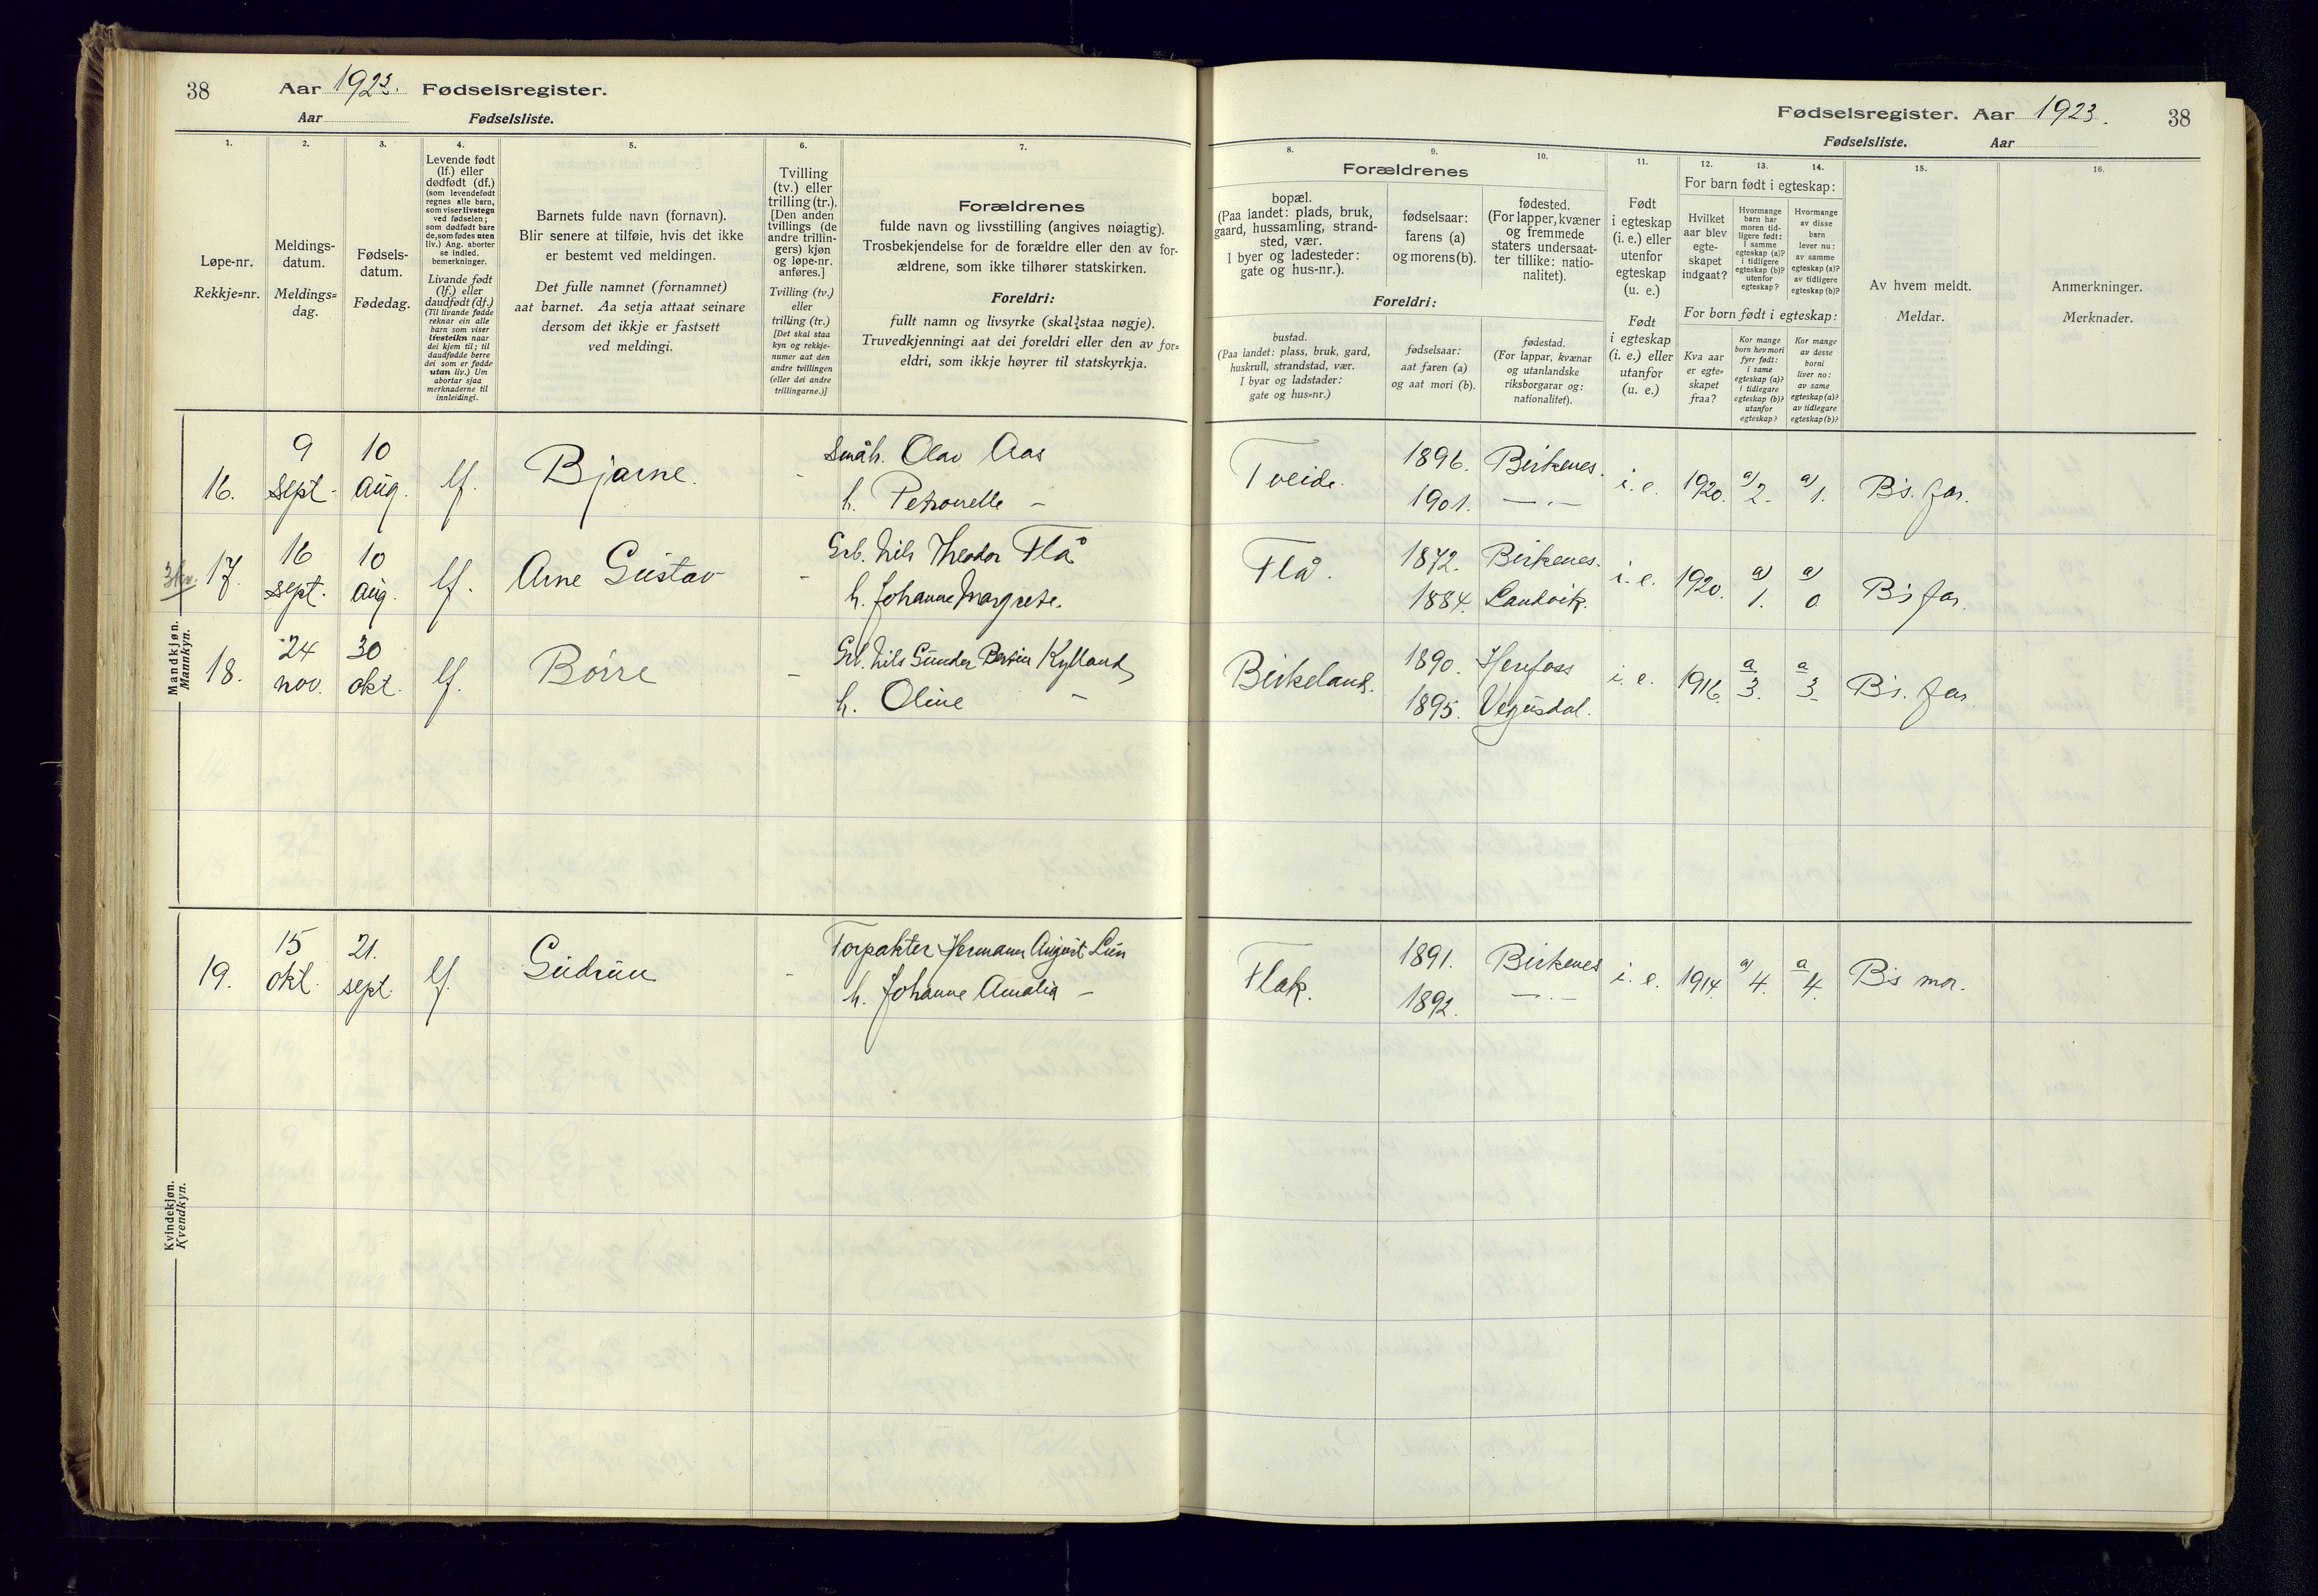 38 Aar 1923. Fødselsregister.
Aar Fødselsliste.
1. 2. 3. 4. 5. 6. 7.
Løpe-nr.
Rekkje=nr.
Meldings-
datum.
Meldings=
dag.
Fødsels-
datum.
Fødedag.
Levende født
(lf.) eller
dødfødt (df.)
(som levendefødt
regnes alle barn,
som viser livstegn
ved fødselen;
som dødfødt bare
de, som fødes uten
liv.) Ang. aborter
se indled.
bemerkninger.
Livande født
(lf.) eller
daudfødt (df.)
(Til livande fødde
reknar ein alle
barn som viser
livsteikn naar
dei kjem til; til
daudfødde berre
dei som er fødde
utan liv.) Um
abortar sjaa
merknaderne til
innleidingi.
Barnets fulde navn (fornavn).
Blir senere at tilføie, hvis det ikke
er bestemt ved meldingen.
Det fulle namnet (fornamnet)
aat barnet. Aa setja attaat seinare
dersom det ikkje er fastsett
ved meldingi.
Tvilling
(tv.) eller
trilling (tr.).
[Den anden
tvillings (de
andre trillin-
gers) kjøn
og løpe-nr.
anføres.]
Tvilling (tv.)
eller
trilling (tr.)
[Det skal staa
kyn og rekkje-
numer aat den
andre tvillingen
(eller dei andre
trillingarne.)]
Forældrenes
fulde navn og livsstilling (angives nøiagtig).
Trosbekjendelse for de forældre eller den av for-
ældrene, som ikke tilhører statskirken.
Foreldri:
fullt namn og livsyrke (skal staa nøgje).
Truvedkjenningi aat dei foreldri eller den av for=
eldri, som ikkje høyrer til statskyrkja.
Mandkjøn.
Mannkyn.
16. 9 sept. 10 aug. lf. Bjarne. - Småb. Olav Aas
h. Petronelle –
17. 16 sept. 10 aug. lf. Arne Gustav - Grb. Nils Theodor Flå
h. Johanne Margrete.
18. 24 nov. 30 okt. lf. Børre - Grb. Nils Gunder Kylland
h. Oline –
Kvindekjøn.
Kvendkyn.
19. 15 okt. 21. sept. lf. Gudrun - Torpakter Hermann August Lun
h. Johanne Amalia –
Fødselsregister. Aar 1923. 38
Fødselsliste. Aar
8. 9. 10. 11. 12. 13. 14. 15. 16.
Forældrenes
bopæl.
(Paa landet: plads, bruk,
gaard, hussamling, strand-
sted, vær.
I byer og ladesteder:
gate og hus-nr.).
fødselsaar:
farens (a)
og morens (b).
fødested.
(For lapper, kvæner
og fremmede
staters undersaat-
ter tillike: natio-
nalitet).
Foreldri:
bustad.
(Paa landet: plass, bruk, gard,
huskrull, strandstad, vær.
I byar og ladstader:
gate og hus=nr.)
fødselsaar:
aat faren (a)
og aat mori (b).
fødestad.
(For lappar, kvænar
og utanlandske
riksborgarar og:
nationalitet).
Født
i egteskap
(i. e.) eller
utenfor
egteskap
(u. e.)
Født
i egteskap
(i. e.) eller
utanfor
(u. e.)
For barn født i egteskap:
Hvilket
aar blev
egte-
skapet
indgaat?
Hvormange
barn har
moren tid-
ligere født:
i samme
egteskap (a)?
i tidligere
egteskap (b)?
utenfor
egteskap?
Hvormange
av disse
barn
lever nu:
av samme
egteskap (a)?
av tidligere
egteskap (b)?
For born født i egteskap:
Kva aar
er egte=
skapet
fraa?
Kor mange
born hev mori
fyrr født:
i same
egteskap (a)?
i tidlegare
egteskap (b)?
utanfor
egteskap?
Kor mange
av desse
borni
liver no:
av same
egteskap (a)?
av tidlegare
egteskap (b)?
Av hvem meldt.
Meldar.
Anmerkninger.
Merknader.
Tveide. 1896. Birkenes. i. e. 1920. a) 2. a) 1. B's. far.
1901. — . —
Flå. 1872. Birkenes. i. e. 1920. a) 1. a) 0 B's far.
1884. Landvik.
Birkeland. 1890. i. e. 1916. a 3. a 3 B's. far.
1895. Vegusdal.
Flak. 1891. Birkenes i. e. 1914. a) 4. a 4. B's mor.
1892. — . —